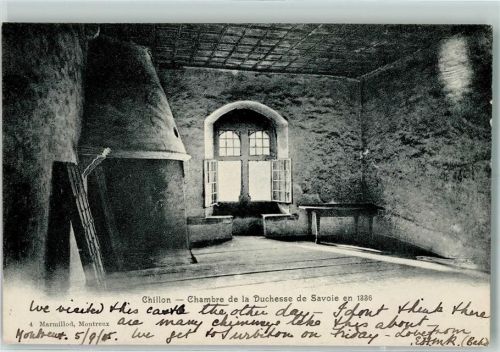 Chillon — Chambre de la Duchesse de Savoie en 1336
4 Marmillod, Montreux
We visited this castle the other day - I dont think there
are many chimneys like this about -
Montreux. 5/9/05. We get to on Friday - Love from